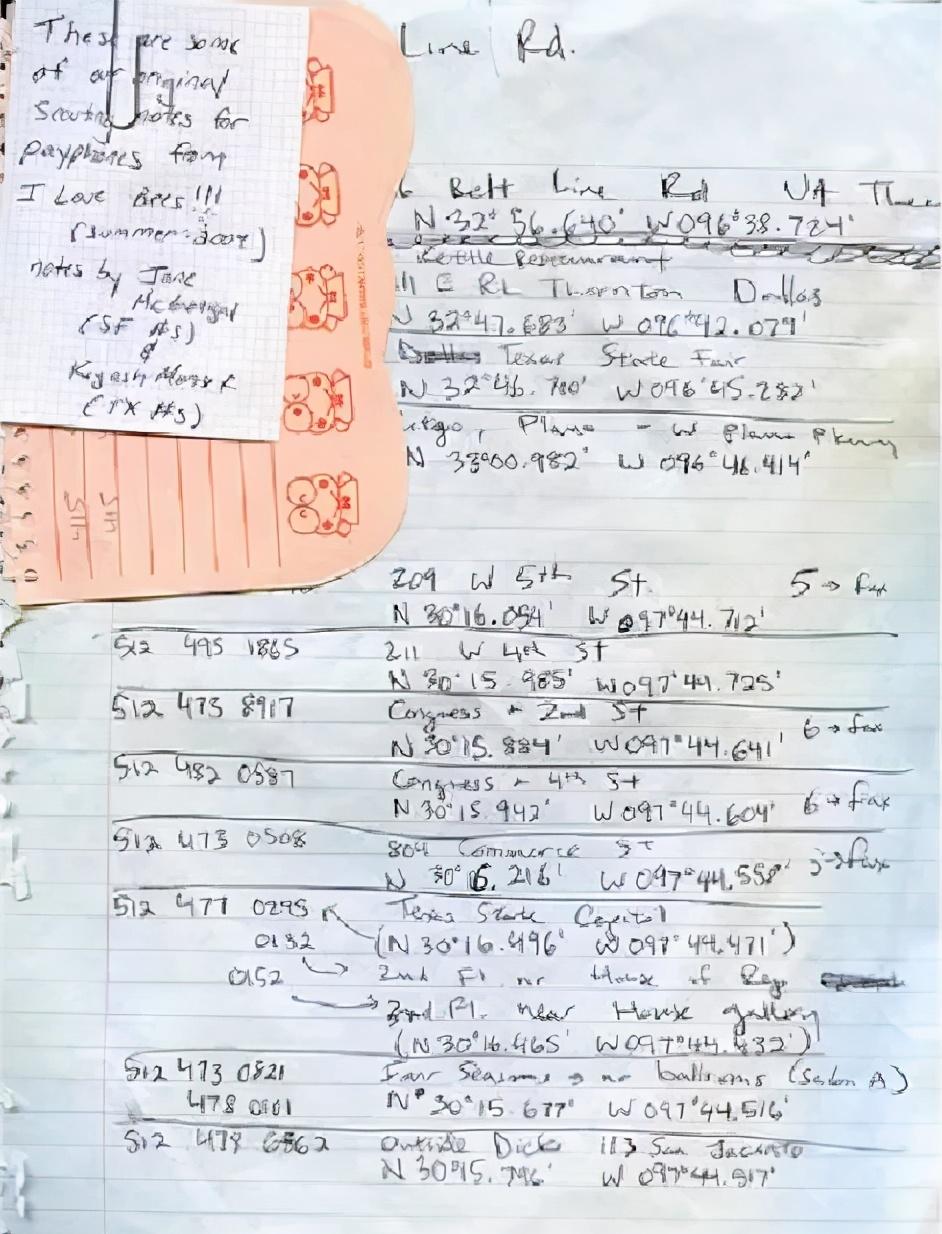 These are some
of our original
Scouting notes for
payphones from
I Love Bees!!!
(summer
notes by Jane
McGonigal
(SF #s)
&
(TX #s)
Line Rd.
Belt Line Rd
N 32° 56.640' W096°38.724'
Kettle Restaurant
E RL Thornton Dallas
N 32°47.683' W 096°42.079'
Texas State Fair
N 32°46. W096°45.282'
Plano - W Plano Pkwy
N 33°00.982' W 096°46.414'
209 W 5th St. 5 → Fax
N 30°16.054' W 097°44.712'
512 495 1865 211 W 4th St
N 30°15.985' W097°44.725'
512 473 8917 Congress + 2nd St
N 30°15.884' W097°44.641' 6 → fax
512 482 0587 Congress + 4th St
N 30°15.942' W097°44.604' 6 → fax
512 473 0508 804 Commerce St
N 30° .216' W 097°44.558' → fax
512 477 0295 Texas State Capitol
0132 (N 30°16.496' W097°44.471')
0152 2nd Fl nr House of Rep
3rd Fl. near House gallery
(N 30°16.465' W097°44.432')
512 473 0821 Four Seasons → nr ballrooms (Salon A)
478 N° 30°15.677' W 097°44.516'
512 478 outside Dick 113 San Jacinto
N 30°15. W 097°44.517'